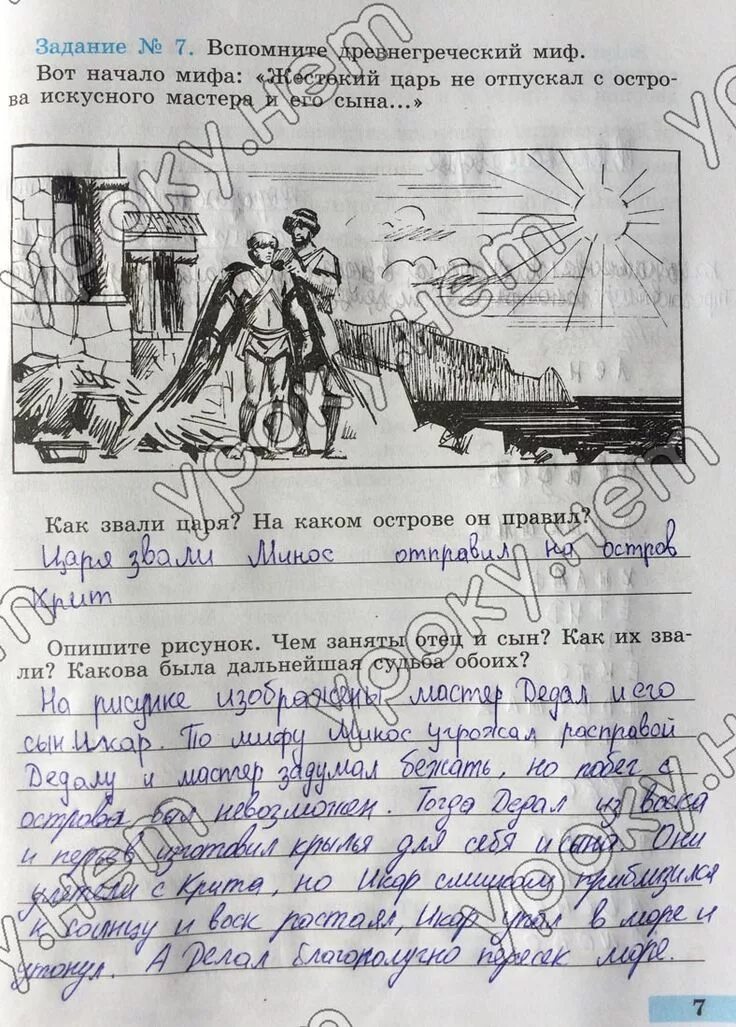 Задание № 7. Вспомните древнегреческий миф.
Вот начало мифа: «Жестокий царь не отпускал с остро-
ва искусного мастера и его сына...»
Как звали царя? На каком острове он правил?
Царя звали Минос отправил на остров
Крит
Опишите рисунок. Чем заняты отец и сын? Как их зва-
ли? Какова была дальнейшая судьба обоих?
На рисунке изображены мастер Дедал и его
сын Икар. По мифу Минос угрожал расправой
Дедалу и мастер задумал бежать, но побег с
острова был невозможен. Тогда Дедал из воска
и перьев изготовил крылья для себя и сына. Они
улетели с Крита, но Икар слишком приблизился
к солнцу и воск растаял, Икар упал в море и
утонул. А Дедал благополучно пересек море.
7
уроку.нет